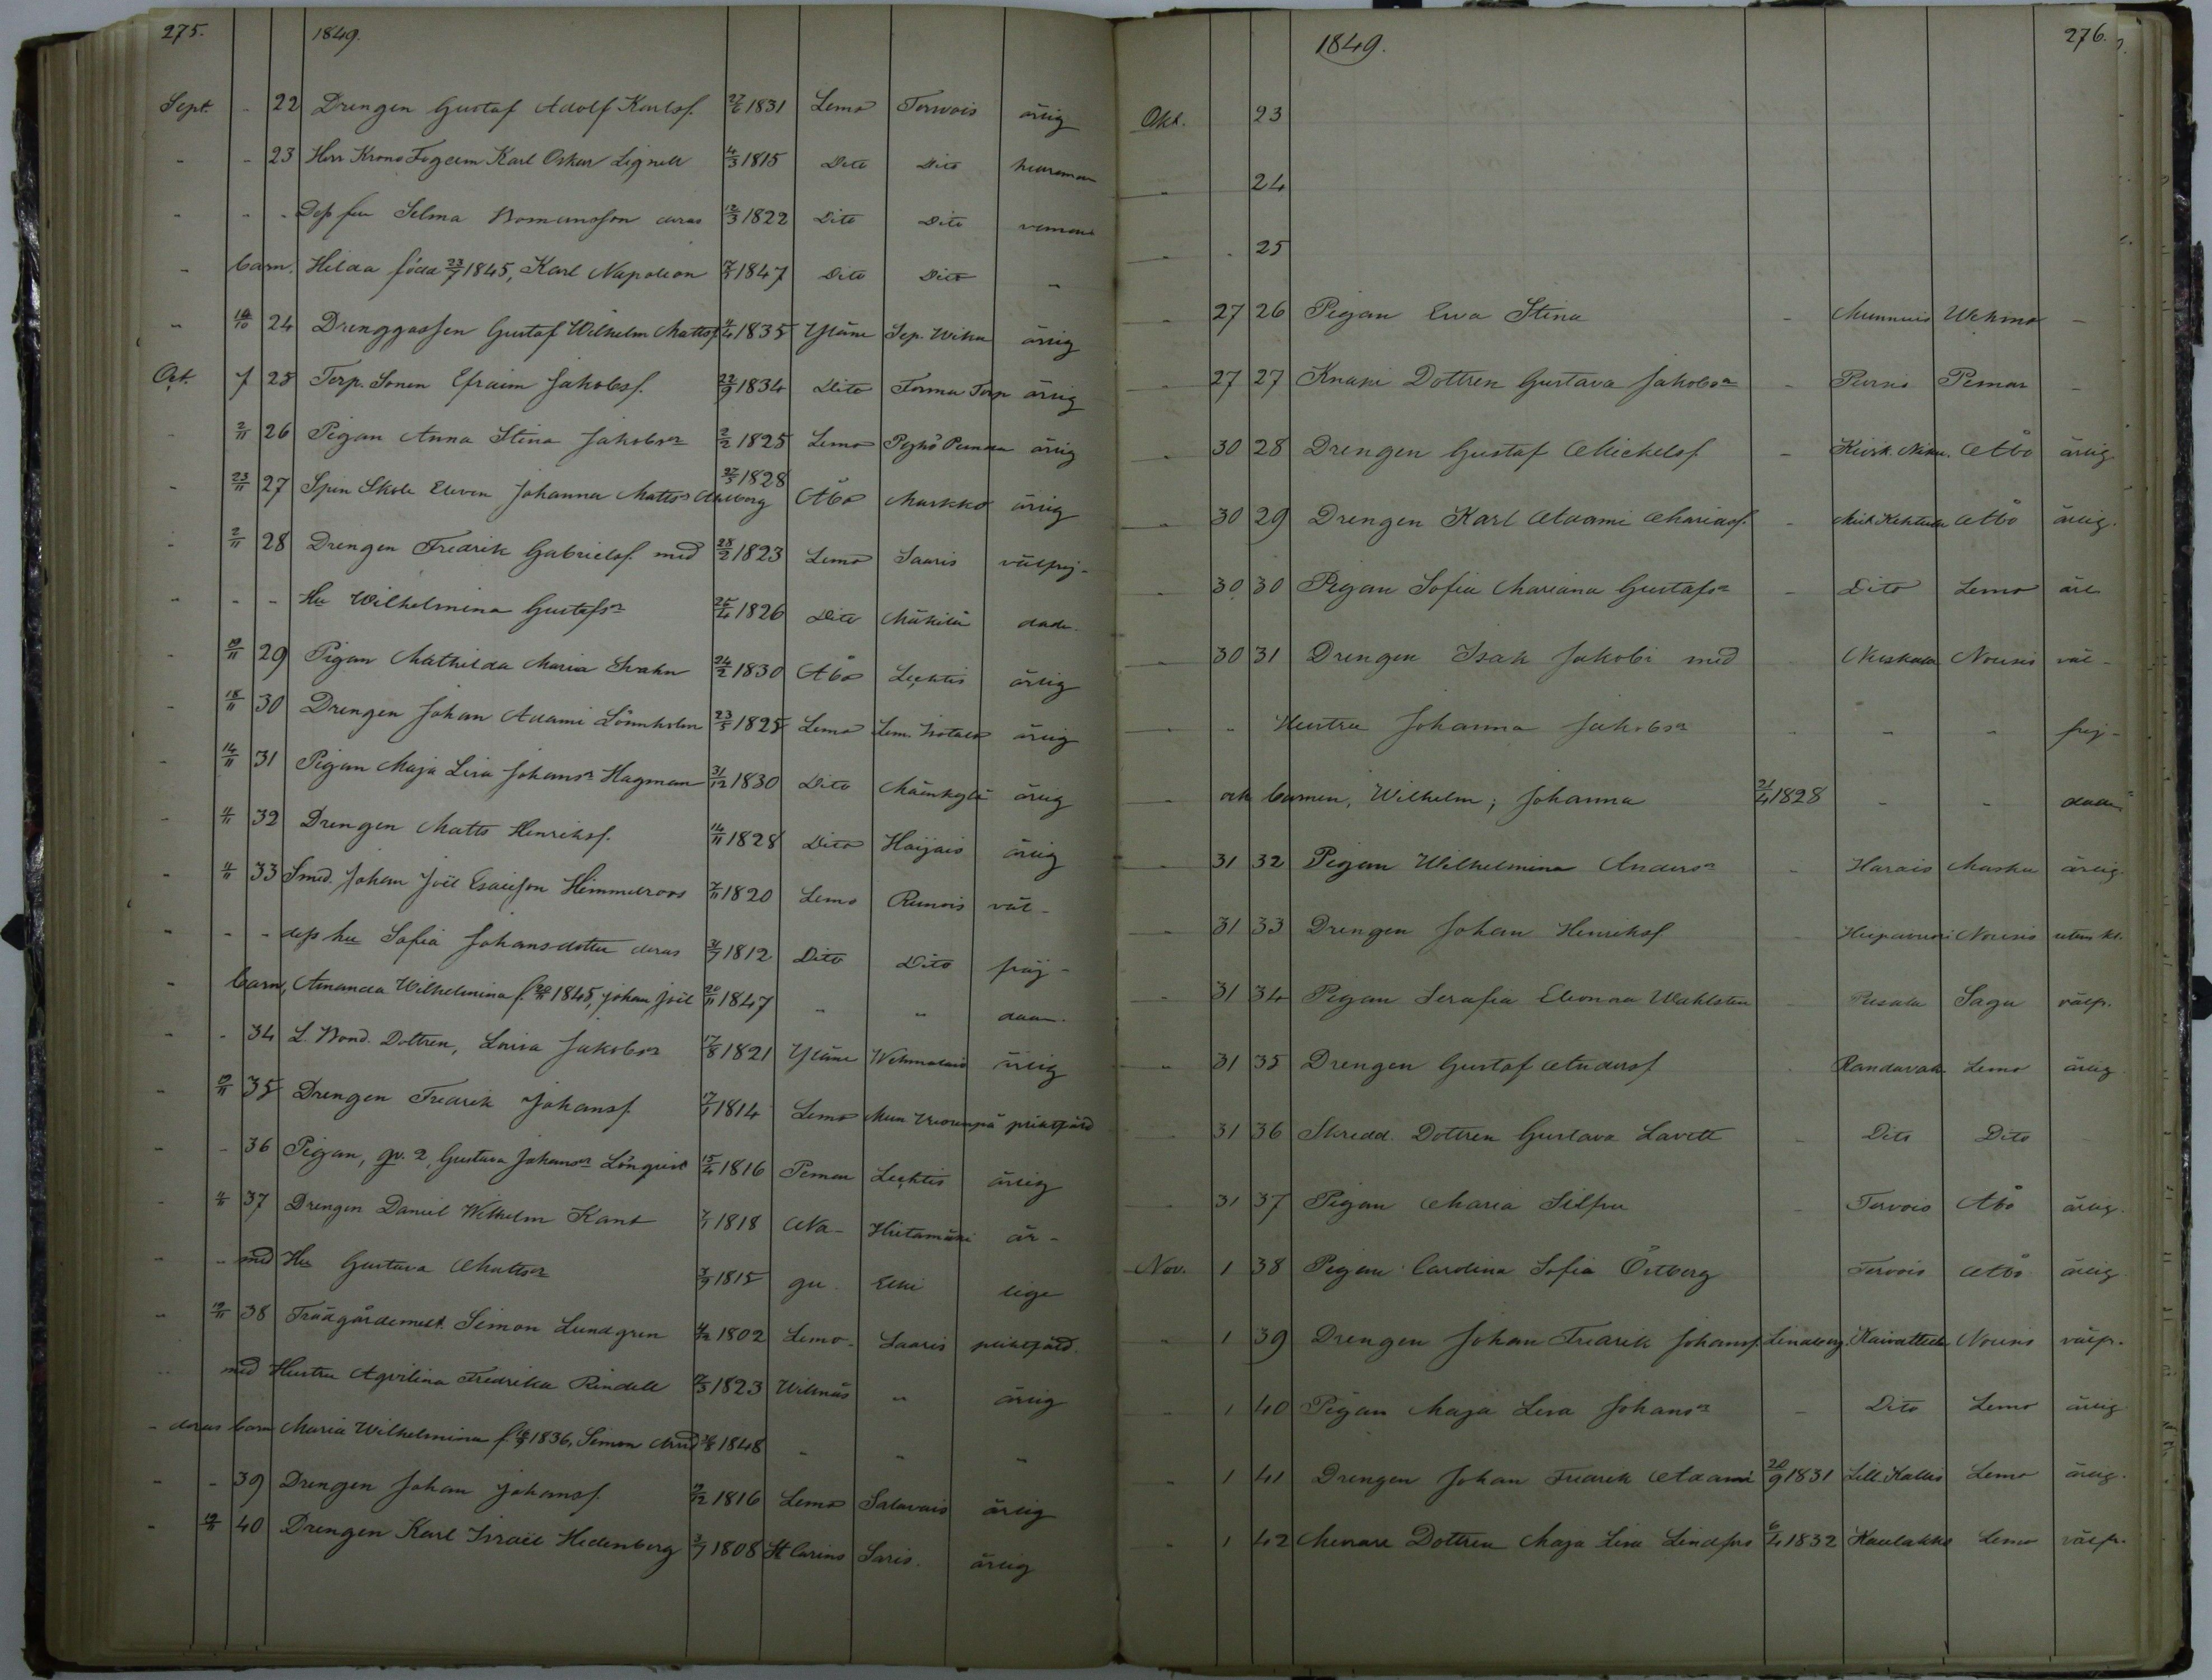 275. 1849.
Sept. - 22 Drengen Gustaf Adolf Karlsf. 27/6 1831 Lemo Tervois ärlig
- - 23 Herr Krono Fogden Karl Oskar Lignell 4/3 1815 Dito Dito
- - - Dess fru Selma deras 12/3 1822 Dito Dito
- barn. Hilda föda 23/7 1845, Karl Napoleon 1847 Dito Dito -
- 24 Drenggossen Gustaf Wilhelm Mattsf 1835 Yläne ärlig
Oct. 7 25 Torp. Sonen Efraim Jakobsf. 22/9 1834 Dito Torp ärlig
- 2/11 26 Pigan Anna Stina Jakobsr 2/2 1825 Lemo ärlig
- 23/11 27 Spin Skole Eleven Johanna Mattsr 1828 Åbo Markko ärlig
- 2/11 28 Drengen Fredrik Gabrielsf. med 28/2 1823 Lemo Saaris välfrej-
- - - Hu Wilhelmina Gustafsr 25/4 1826 Dito Mäkilä dade.
- 29 Pigan Mathilda Maria Svahn 24/2 1830 Åbo Lechtis ärlig
- 18/11 30 Drengen Johan Adami Lönnholm 23/5 1825 Lemo Lem. Isotalo ärlig
- 14/11 31 Pigan Maja Lisa Johansr Hagman 31/12 1830 Dito ärlig
- 4/11 32 Drengen Matts Henriksf. 14/11 1828 Dito Haijais ärlig
- 4/11 33 Smed. Johan Joel Esaiesson Himmelroos 7/11 1820 Lemo väl-
- - - dess hu Sofia Johansdotter deras 1812 Dito Dito fräj-
- barn, Amanda Wilhelmina f. 20/11 1845, Johan Joel 20/11 1847 " " daa.
- - 34 L. Bond. Dottren, Lovisa Jakobsr 17/8 1821 Yläne ärlig
- 35 Drengen Fredrik Johansf. 17/1 1814 Lemo
- - 36 Pigan, gv. 2, Gustava Johansr Lönqvist 15/4 1816 Pemar Lechtis ärlig
- 4/11 37 Drengen Daniel Wilhelm Kant 1818 Na- Hietamäki är-
- " med Hu Gustava Mattsr 3/9 1815 gu. lige
- 19/11 38 Trädgårdsmest. Simon Lundgren 1802 Lemo Saaris
- med Hustru Agvilina Fredrika Rindell 7/3 1823 Wilnäs " ärlig
- deras barn Maria Wilhelmina f. 1836, Simon 1848 - " "
- - 39 Drengen Johan Johansf. 9/12 1816 Lemo Salavais ärlig
- 19/11 40 Drengen Karl Israël Hedenberg 3/7 1808 St Carins Saris. ärlig
1849. 276.
Okt. 23
- 24
- - 25
- 27 26 Pigan Eva Stina - Munnuis Wehmo -
- 27 27 Dottren Gustava Jakobsr - Pemar -
- 30 28 Drengen Gustaf Mickelsf - Åbo ärlig
- 30 29 Drengen Karl Adami - Åbo ärlig.
- 30 30 Pigan Sofia Mariana Gustafsr - Dito Lemo ärl.
- 30 31 Drengen Isak Jakobi med Nousis väl-
- " Hustru Johanna Jakobsr - - - frej-
- och barnen, Wilhelm; Johanna 21/4 1828 - - daa
- 31 32 Pigan Wilhelmina Andersr - Harais Masku ärlig.
- 31 33 Drengen Johan Henriksf Nousis
- 31 34 Pigan Serafia Eleonora Wahlsten Sagu välfr.
- 31 35 Drengen Gustaf Andersf Lemo ärlig
- 31 36 Skredd. Dottren Gustava Lavett - Dito Dito
- 31 37 Pigan Maria Silfru - Tervois Åbo ärlig.
Nov. 1 38 Pigan Carolina Sofia Östberg Tervois Åbo ärlig
" 1 39 Drengen Johan Fredrik Johansf. Lindberg. Nousis välfr.
- 1 40 Pigan Maja Lisa Johansr - Dito Lemo ärlig
- 1 41 Drengen Johan Fredrik Adami 20/9 1831 Lill. Kallis Lemo ärlig.
- 1 42 Murare Dottren Maja Lisa Lindfors 6/4 1832 Kaulakko Lemo välfr.